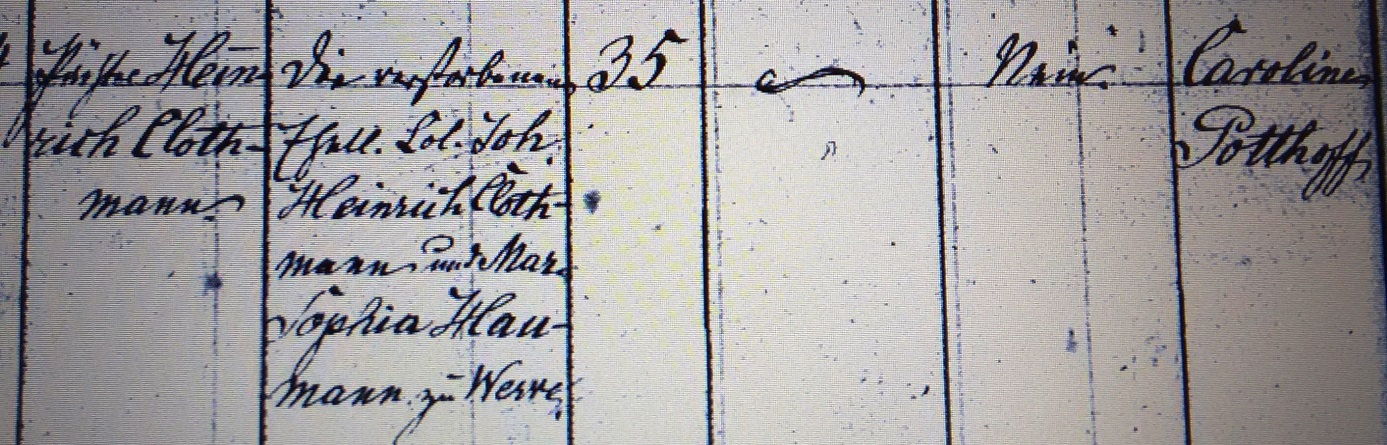 Heinrich Cloth-
mann
Die verstorbenen
Ehell. Col. Joh.
Heinrich Cloth-
mann und Mar.
Sophia Hau-
mann zu Werve
35
Nein
Caroline
Potthoff